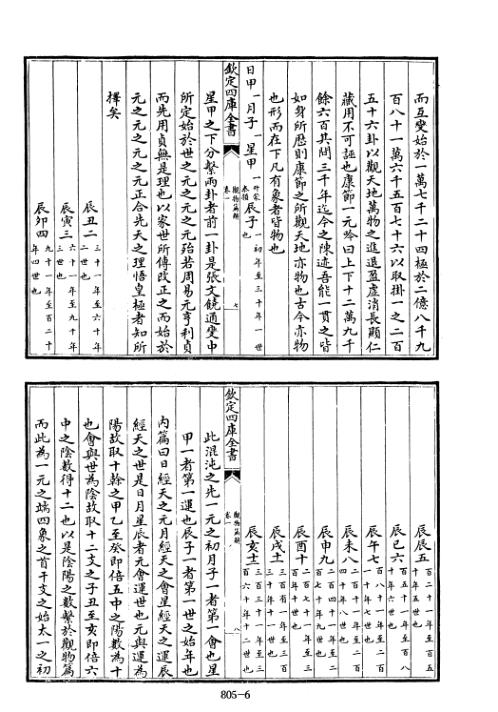 而互變始於一萬七千二十四極於二億八千九
百八十一萬六千五百七十六以取掛一之二百
五十六卦以觀天地萬物之進退盈虛消長顯仁
藏用不可誣也康節一元吟曰上下十二萬九千
餘六百其間三千年迄今之陳迹吾能一貫之皆
如身所歴則康節之所觀天地亦物也古今亦物
也形而在下凡有象者皆物也
日甲一月子一星甲一
升蒙
泰損
辰子一
初年至三十年一世
也
欽定四庫全書
觀物篇解
卷一
七
星甲之下分繫兩卦者前一卦是張文饒通變中
所定始於世之元之元之元殆若周易元亨利貞
而先用貞無是理也以家世所傳改正之而始於
元之元之元之元正合先天之理悟皇極者知所
擇矣
辰丑二
三十一年至六十年
二世也
辰寅三
六十一年至九十年
三世也
辰卯四
九十一年至百二十
年四世也
辰辰五
百二十一年至百五
十年五世也
辰巳六
百五十一年至百八
十年六世也
辰午七
百八十一年至二百
一十年七世也
辰未八
二百一十一年至二百
四十年八世也
辰申九
二百四十一年至二
百七十年九世也
辰酉十
二百七十一年至三
百年十世也
辰戌十一
三百有一年至三百
三十年十一世也
辰亥十二
三百三十一年至三
百六十年十二世也
欽定四庫全書
觀物篇解
卷一
八
此混沌之先一元之初月子一者第一會也星
甲一者第一運也辰子一者第一世之始年也
内篇曰日經天之元月經天之會星經天之運辰
經天之世是日月星辰者元會運世也元與運為
陽故取十幹之甲乙至癸即倍五中之陽數為十
也會與世為陰故取十二支之子丑至亥即倍六
中之陰數得十二也以是陰陽之數繫於觀物篇
而此為一元之端四象之首干支之始太一之初
805-6